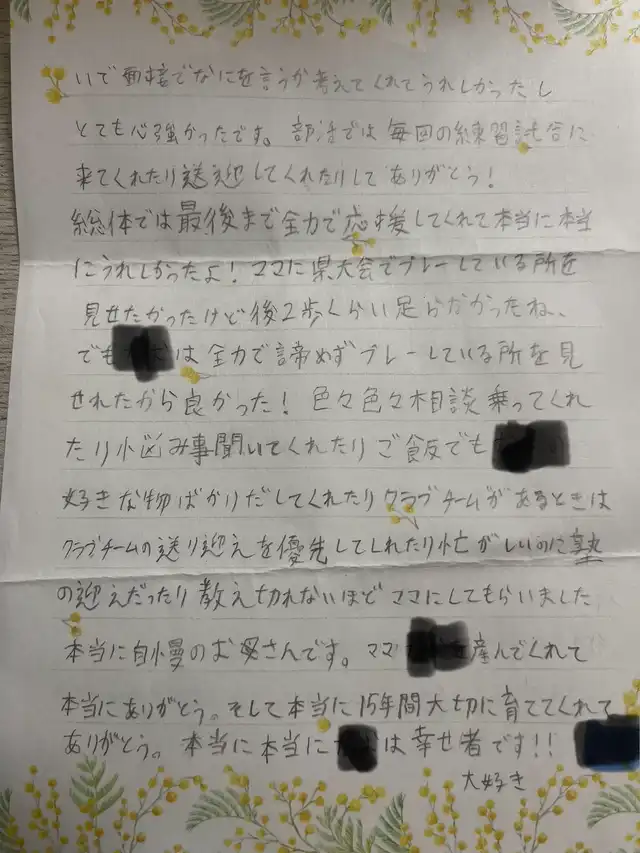 いで面接でなにを言うか考えてくれてうれしかったし
とても心強かったです。部活では毎回の練習試合に
来てくれたり送迎してくれたりしてありがとう!
総体では最後まで全力で応援してくれて本当に本当
にうれしかったよ!ママに県大会でプレーしている所を
見せたかったけど後2歩くらい足らなかったね、
でも は全力で諦めずプレーしている所を見
せれたから良かった!色々色々相談乗ってくれ
たり悩み事聞いてくれたりご飯でも
好きな物ばかりだしてくれたりクラブチームがあるときは
クラブチームの送り迎えを優先してくれたり忙がしいのに塾
の迎えだったり教え切れないほどママにしてもらいました
本当に自慢のお母さんです。ママ を産んでくれて
本当にありがとう。そして本当に15年間大切に育ててくれて
ありがとう。本当に本当に は幸せ者です!!
大好き